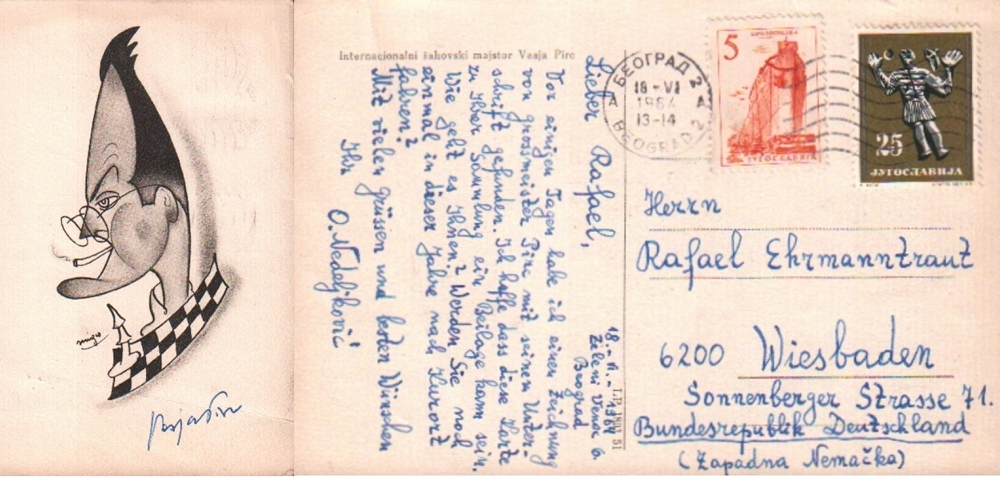 mugo
Vasja Pirc
Internacionalni šahovski majstor Vasja Pirc
18.-VI.-1964
Zeleni Venac 6.
Beograd
Lieber Rafael,
Vor einigen Tagen habe ich einer Zeichnung
von grossmeister Pirc mit seinen Unter-
schrift gefunden. Ich hoffe dass diese Karte
zu Ihrer Sammlung ein Beilage kann sein.
Wie geht es Ihnen? Werden Sie noch
einmal in dieser Jahre nach Kurort
fahren?
Mit vielen grüssen und besten Wünschen
Ihr
O. Nedeljković
БЕОГРАД 2
A A
18-VI
1964
13-14
BEOGRAD 2
5
ЈУГОСЛАВИЈА
25
ЈУГОСЛАВИЈА
Herrn
Rafael Ehrmanntraut
6200 Wiesbaden
Sonnenberger Strasse 71.
Bundesrepublik Deutschland
(Zapadna Nemačka)